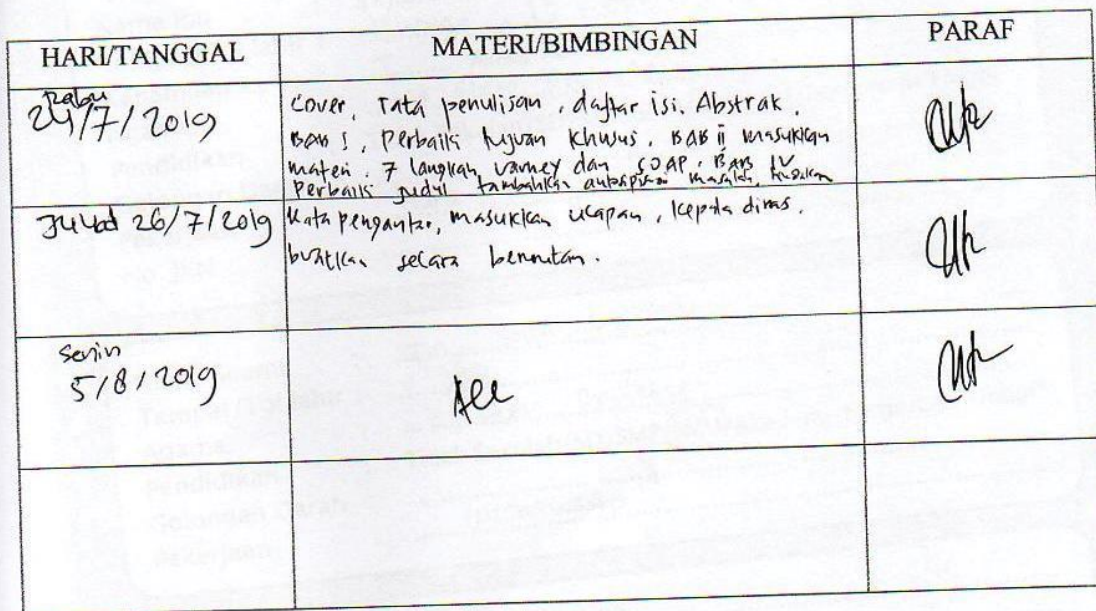 HARI/TANGGAL MATERI/BIMBINGAN PARAF
Rabu
24/7/2019
Cover, Tata penulisan, daftar isi. Abstrak.
BAB I, Perbaiki tujuan khusus. BAB ii masukkan
materi. 7 langkah varney dan SOAP. BAB IV
Perbaiki judul tambahkan masalah,
Jumat 26/7/2019
Kata pengantar, masukkan ucapan, kepala dinas.
buatkan secara berurutan.
Senin
5/8/2019
Acc